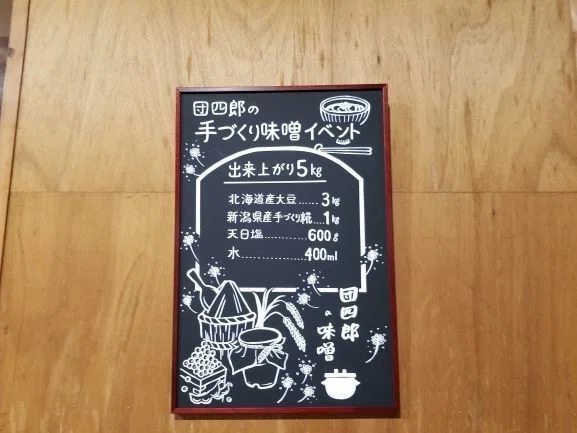 団四郎の
手づくり味噌イベント
出来上がり5kg
北海道産大豆......3kg
新潟県産手づくり糀....1kg
天日塩............600g
水..............400ml
団四郎
の味噌